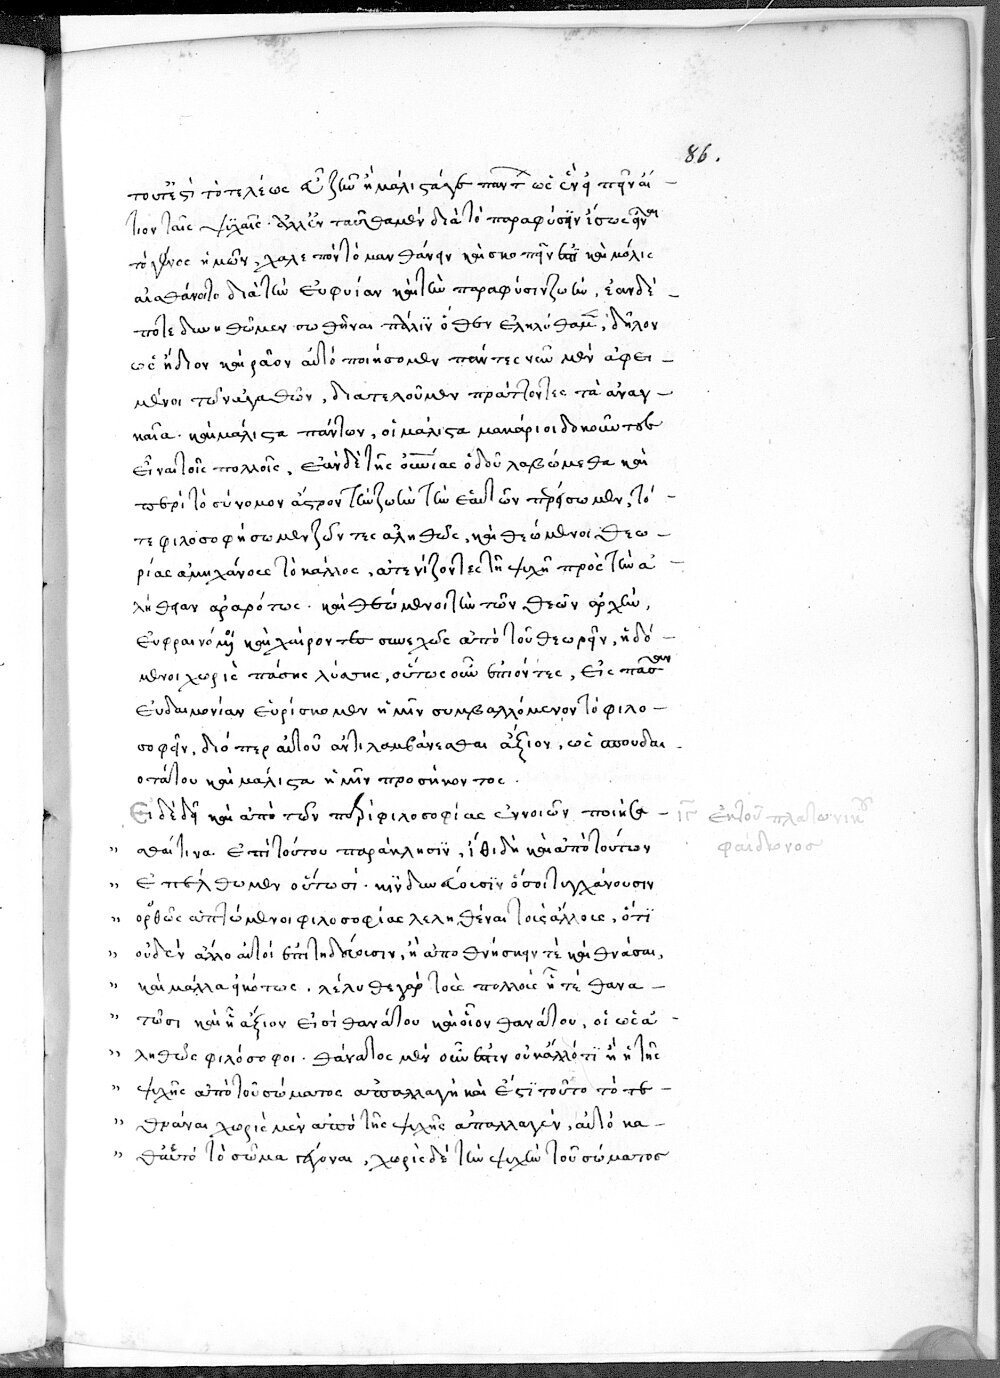 86.
τουτέστι τὸ τελέως εὖ ζῆν ἢ μάλιστά γε πάντων ὡς εἰπεῖν αἴ-
τιον ταῖς ψυχαῖς. ἀλλ' ἐνταῦθα μὲν διὰ τὸ παρὰ φύσιν ἴσως εἶναι
τὸ γένος ἡμῶν, χαλεπὸν τὸ μανθάνειν καὶ σκοπεῖν ἐστι καὶ μόλις
αἰσθάνοιτο διὰ τὴν εὐφυίαν καὶ τὴν παρὰ φύσιν ζωήν, ἐὰν δέ
ποτε δυνηθῶμεν σωθῆναι πάλιν ὅθεν ἐληλύθαμεν, δῆλον
ὡς ἥδιον καὶ ῥᾷον αὐτὸ ποιήσομεν πάντες νῦν μὲν ἀφει-
μένοι τῶν ἀγαθῶν, διατελοῦμεν πράττοντες τὰ ἀναγ-
καῖα. καὶ μάλιστα πάντων, οἱ μάλιστα μακάριοι δοκοῦντες
εἶναι τοῖς πολλοῖς, ἐὰν δὲ τῆς οὐρανίας ὁδοῦ λαβώμεθα καὶ
ἐπὶ τὸ σύνομον ἄστρον τὴν ζωὴν τὴν ἑαυτῶν τό-
τε φιλοσοφήσωμεν ζῶντες ἀληθῶς, καὶ θεώμενοι θεω-
ρίας ἀμηχάνους τὸ κάλλος, ἀτενίζοντες τῇ ψυχῇ πρὸς τὴν ἀ-
λήθειαν ἀραρότως. καὶ θεώμενοι τὴν τῶν θεῶν ἀρχήν,
εὐφραινόμενοι καὶ χαίροντες συνεχῶς ἀπὸ τοῦ θεωρεῖν, ἡδό-
μενοι χωρὶς πάσης λύπης, οὕτως οὖν ἐπιόντες, εἰς πᾶσαν
εὐδαιμονίαν εὑρίσκομεν ἡμῖν συμβαλλόμενον τὸ φιλο-
σοφεῖν, διόπερ αὐτοῦ ἀντιλαμβάνεσθαι ἄξιον, ὡς σπουδαι-
οτάτου καὶ μάλιστα ἡμῖν προσήκοντος.
Εἰ δὲ δὴ καὶ ἀπὸ τῶν περὶ φιλοσοφίας ἐννοιῶν ποιεῖσ- ιγ ἐκ τοῦ πλατωνικοῦ
" θαί τινα ἐπὶ τούτου παράκλησιν, ἴθι δὴ καὶ ἀπὸ τούτων φαίδωνος
" ἐπέλθωμεν οὑτωσί. κινδυνεύουσιν ὅσοι τυγχάνουσιν
" ὀρθῶς ἁπτόμενοι φιλοσοφίας λεληθέναι τοὺς ἄλλους, ὅτι
" οὐδὲν ἄλλο αὐτοὶ ἐπιτηδεύουσιν, ἢ ἀποθνήσκειν τὲ καὶ τεθνάναι,
" καὶ μάλλα εἰκότως. λέληθε γὰρ τοὺς πολλοὺς ᾗ τὲ θανα-
" τῶσι καὶ ᾗ ἄξιοι εἰσὶ θανάτου καὶ οἵου θανάτου, οἱ ὡς ἀ-
" ληθῶς φιλόσοφοι. θάνατος μὲν οὖν ἐστιν οὐκ ἄλλό τι ἢ ἡ τῆς
" ψυχῆς ἀπὸ τοῦ σώματος ἀπαλλαγὴ καὶ ἔστι τοῦτο τὸ τε-
" θνάναι χωρὶς μὲν ἀπὸ τῆς ψυχῆς ἀπαλλαγὲν, αὐτὸ κα-
" θ' αὑτὸ τὸ σῶμα γεγονέναι, χωρὶς δὲ τὴν ψυχὴν τοῦ σώματος